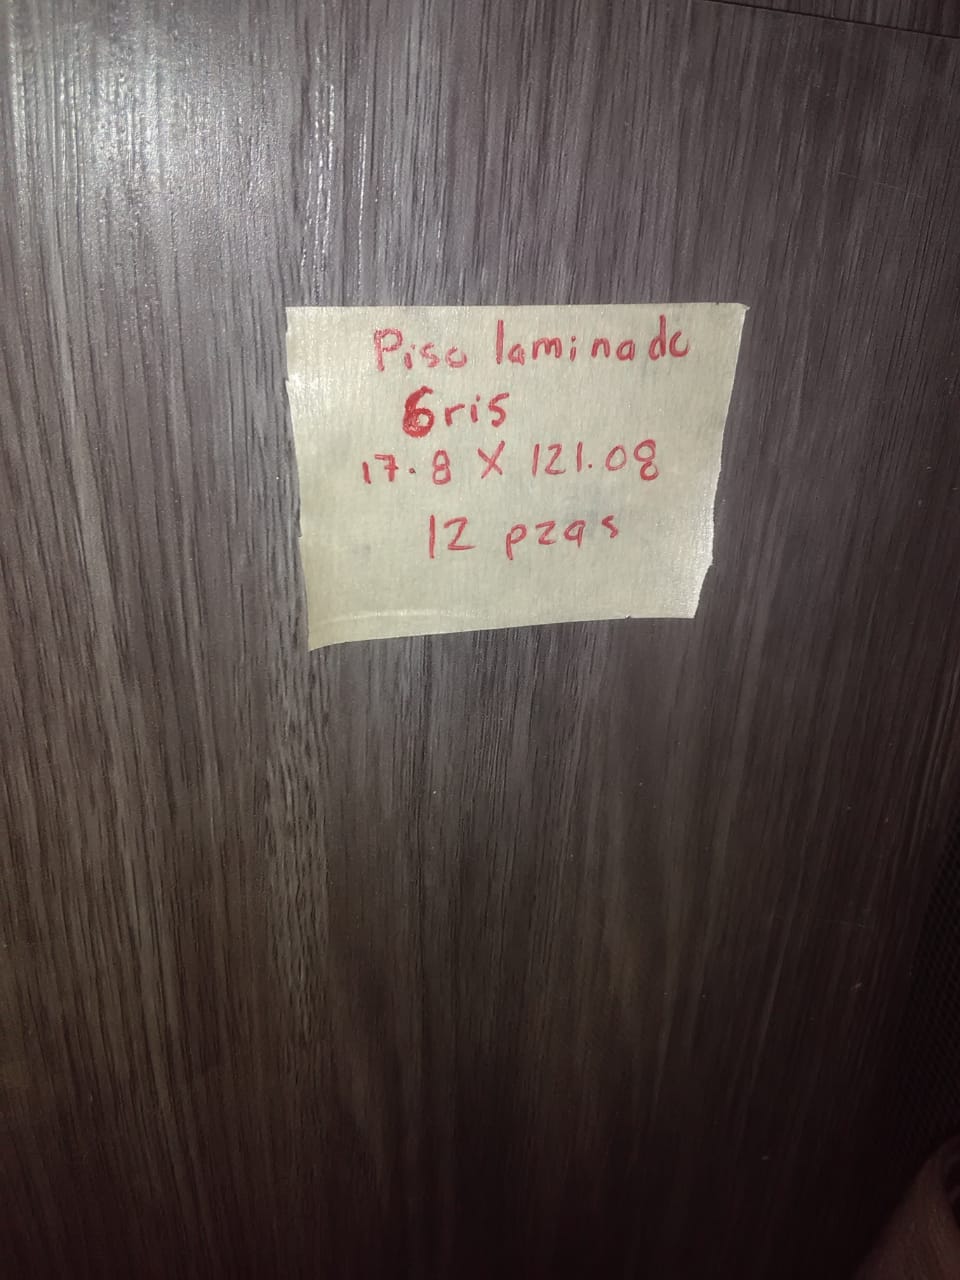 Piso laminado
Gris
17.8 X 121.08
12 pzas